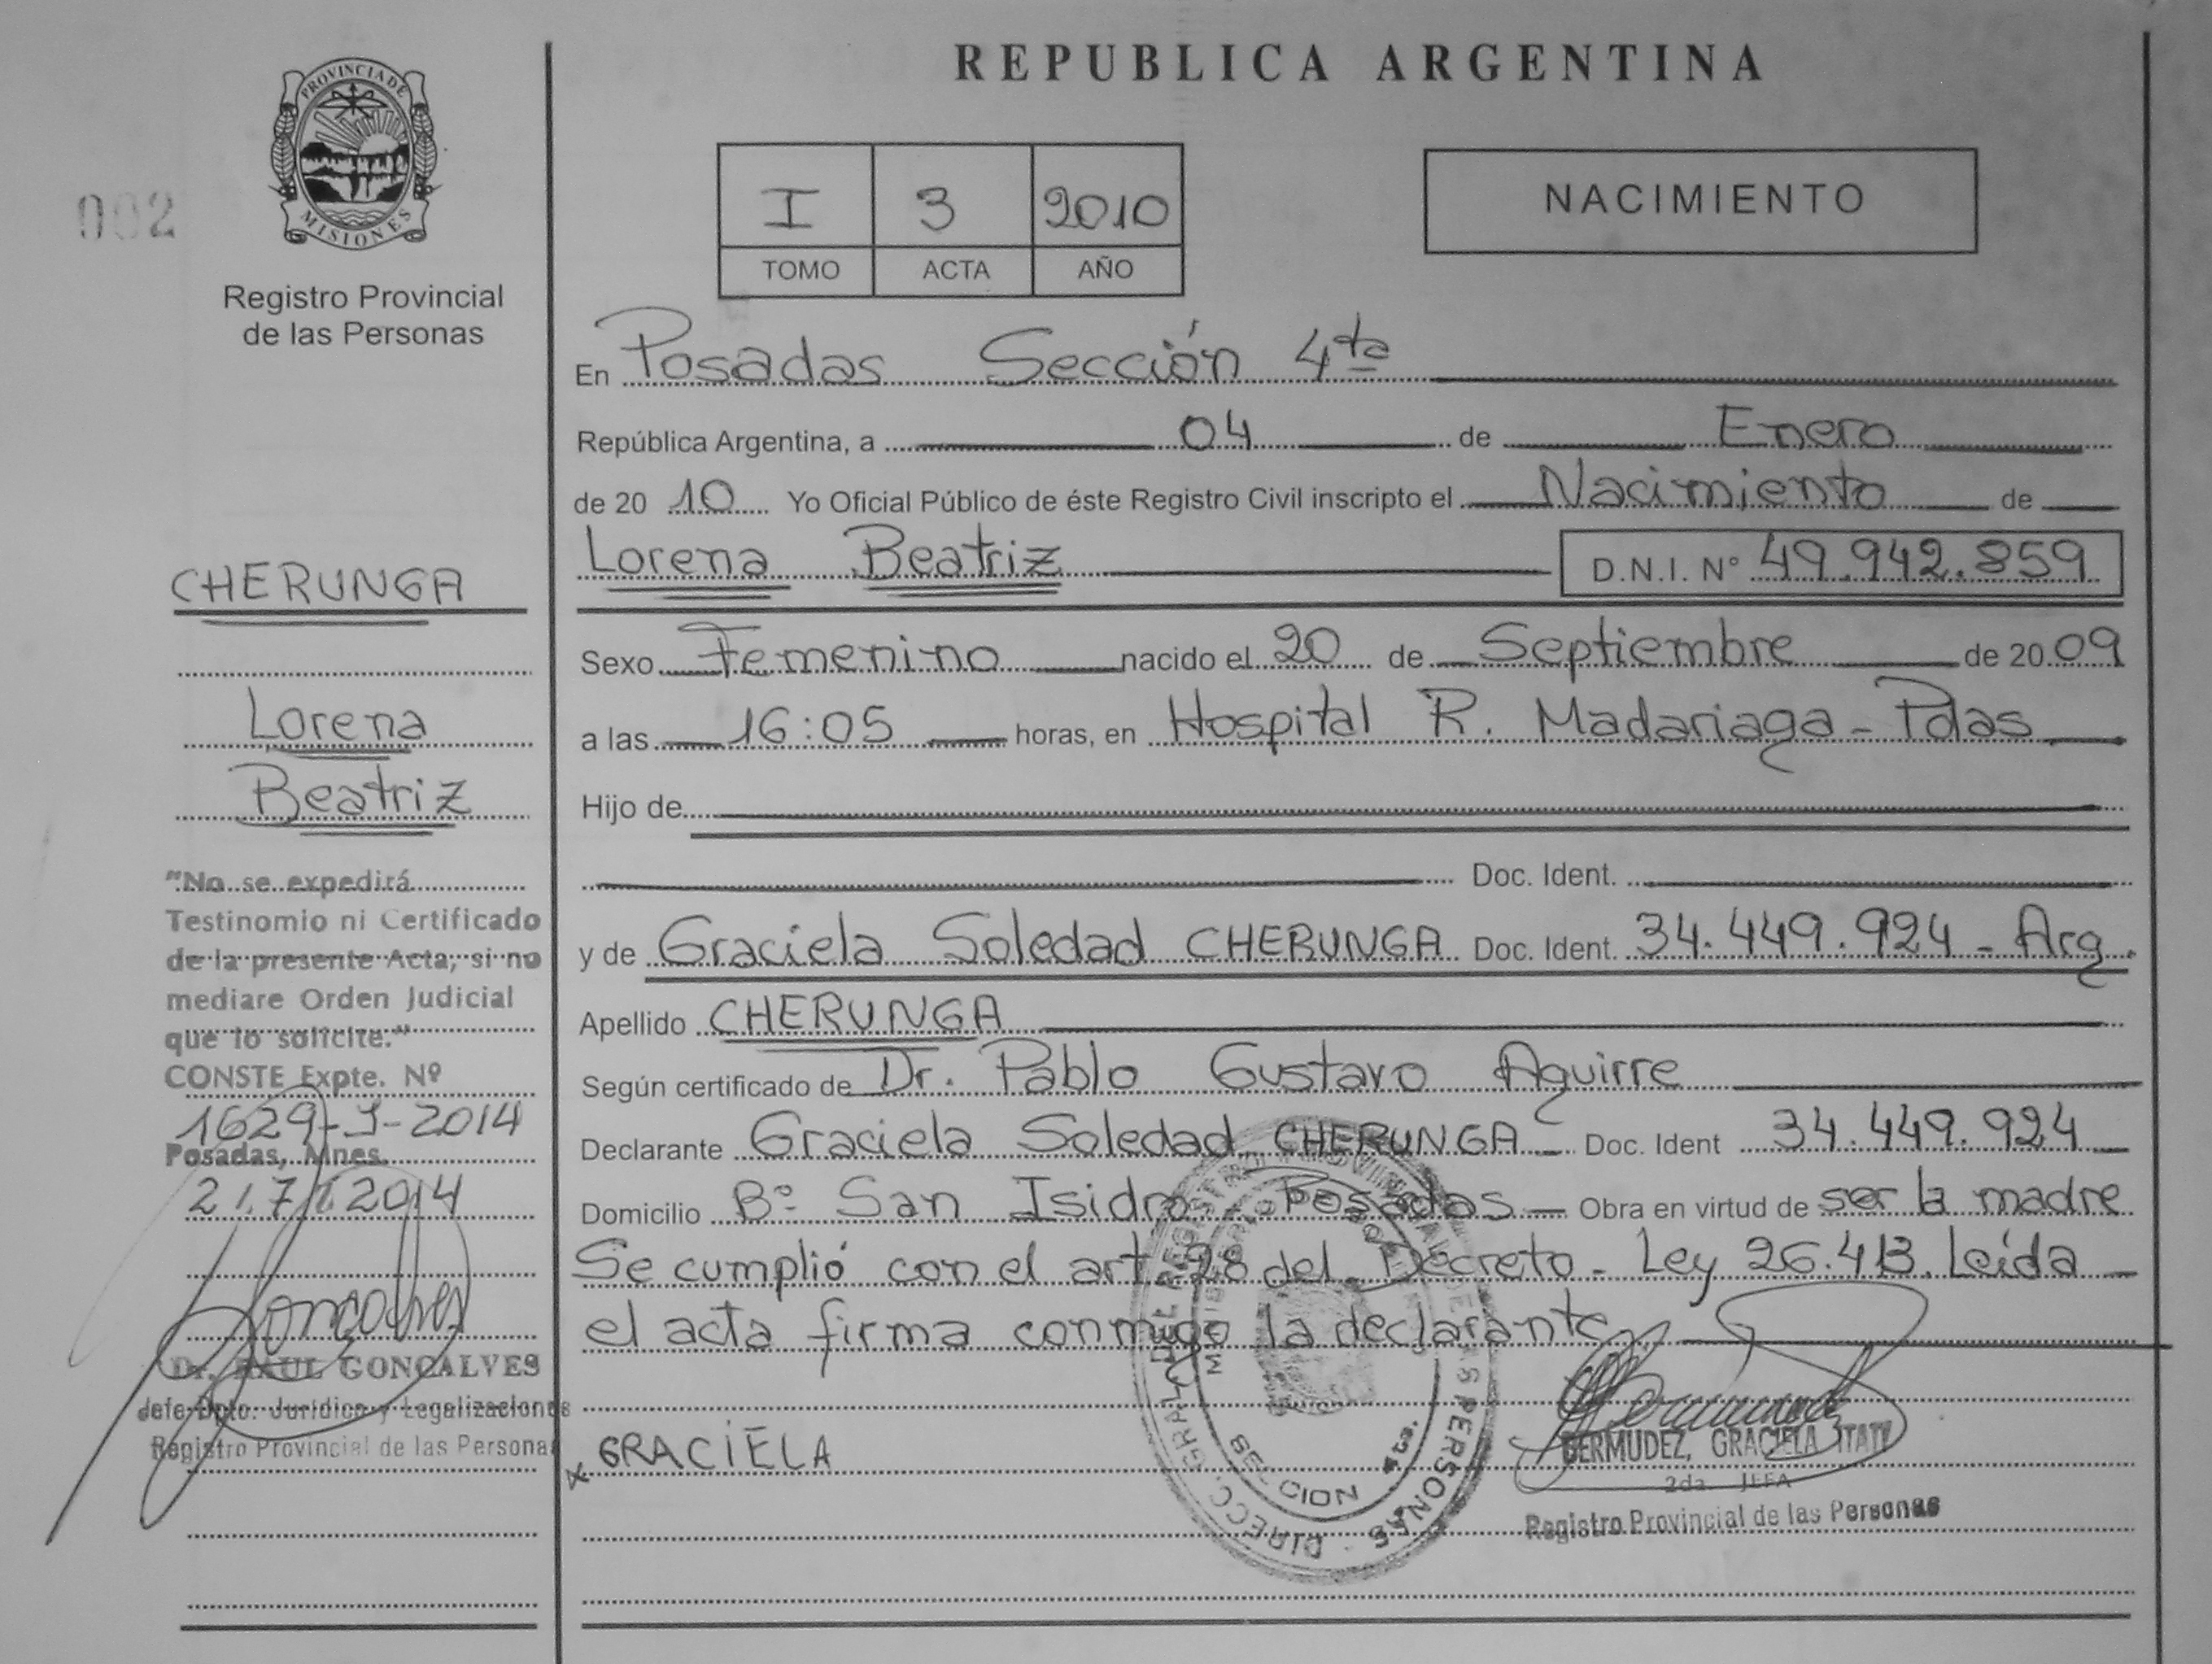 REPUBLICA ARGENTINA
PROVINCIA DE
MISIONES
002
Registro Provincial
de las Personas
I 3 2010
TOMO ACTA AÑO
NACIMIENTO
En Posadas Sección 4ta
República Argentina, a 04 de Enero
de 20 10 Yo Oficial Público de éste Registro Civil inscripto el Nacimiento de
Lorena Beatriz D.N.I. N° 49.942.859
Sexo Femenino nacido el 20 de Septiembre de 20 09
a las 16:05 horas, en Hospital R. Madariaga - Pdas
Hijo de
Doc. Ident.
y de Graciela Soledad CHERUNGA Doc. Ident. 34.449.924 - Arg.
Apellido CHERUNGA
Según certificado de Dr. Pablo Gustavo Aguirre
Declarante Graciela Soledad CHERUNGA - Doc. Ident 34.449.924
Domicilio B° San Isidro - Posadas - Obra en virtud de ser la madre
Se cumplió con el art 28 del Decreto - Ley 26.413. Leída
el acta firma conmigo la declarante
x GRACIELA
BERMUDEZ, GRACIELA ITATI
2da. JEFA
Registro Provincial de las Personas
CHERUNGA
Lorena
Beatriz
"No se expedirá
Testinomio ni Certificado
de la presente Acta, si no
mediare Orden Judicial
que lo solicite."
CONSTE Expte. Nº
1629-J-2014
Posadas, Mnes.
Dr. RAUL GONÇALVES
Jefe Dpto. Jurídico y Legalizaciones
Registro Provincial de las Personas